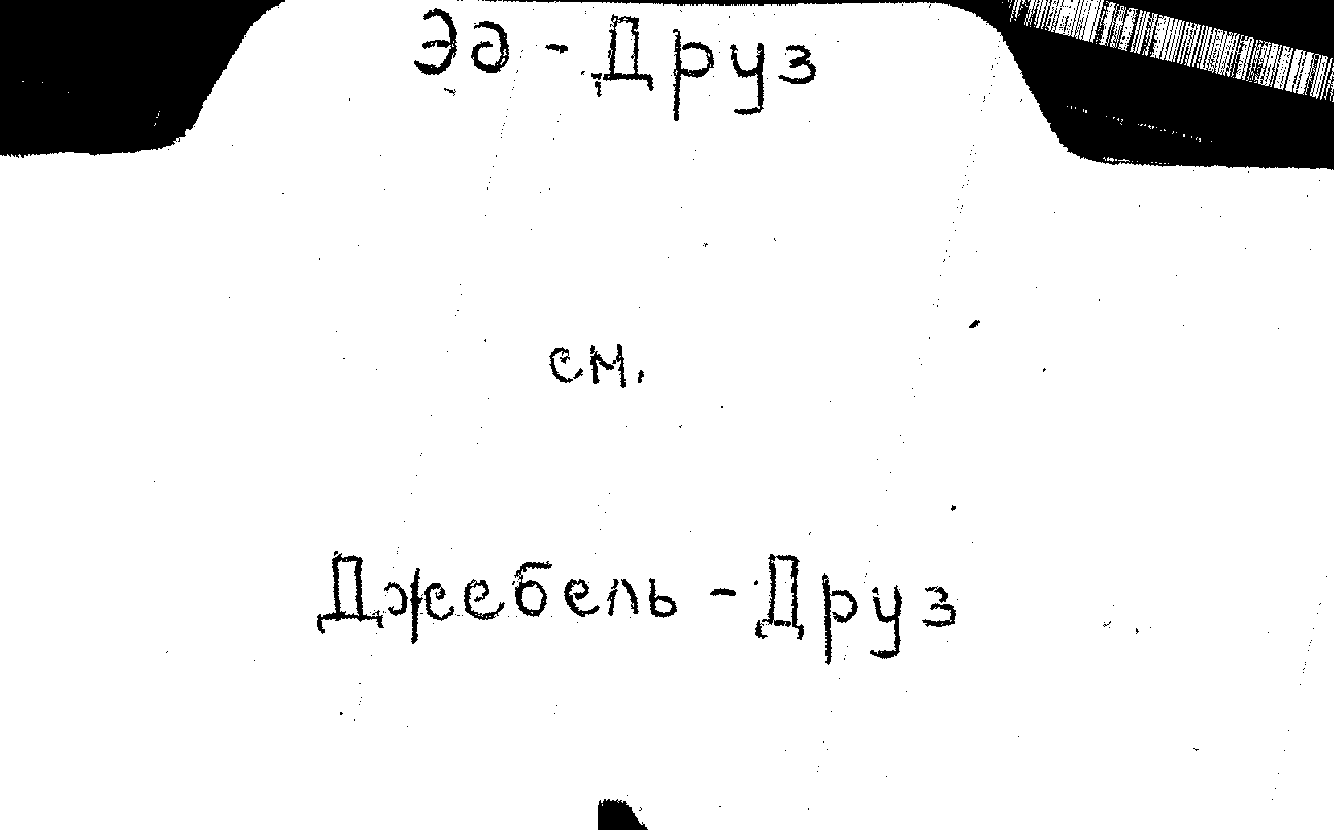 Эд - Друз
см.
Джебель - Друз